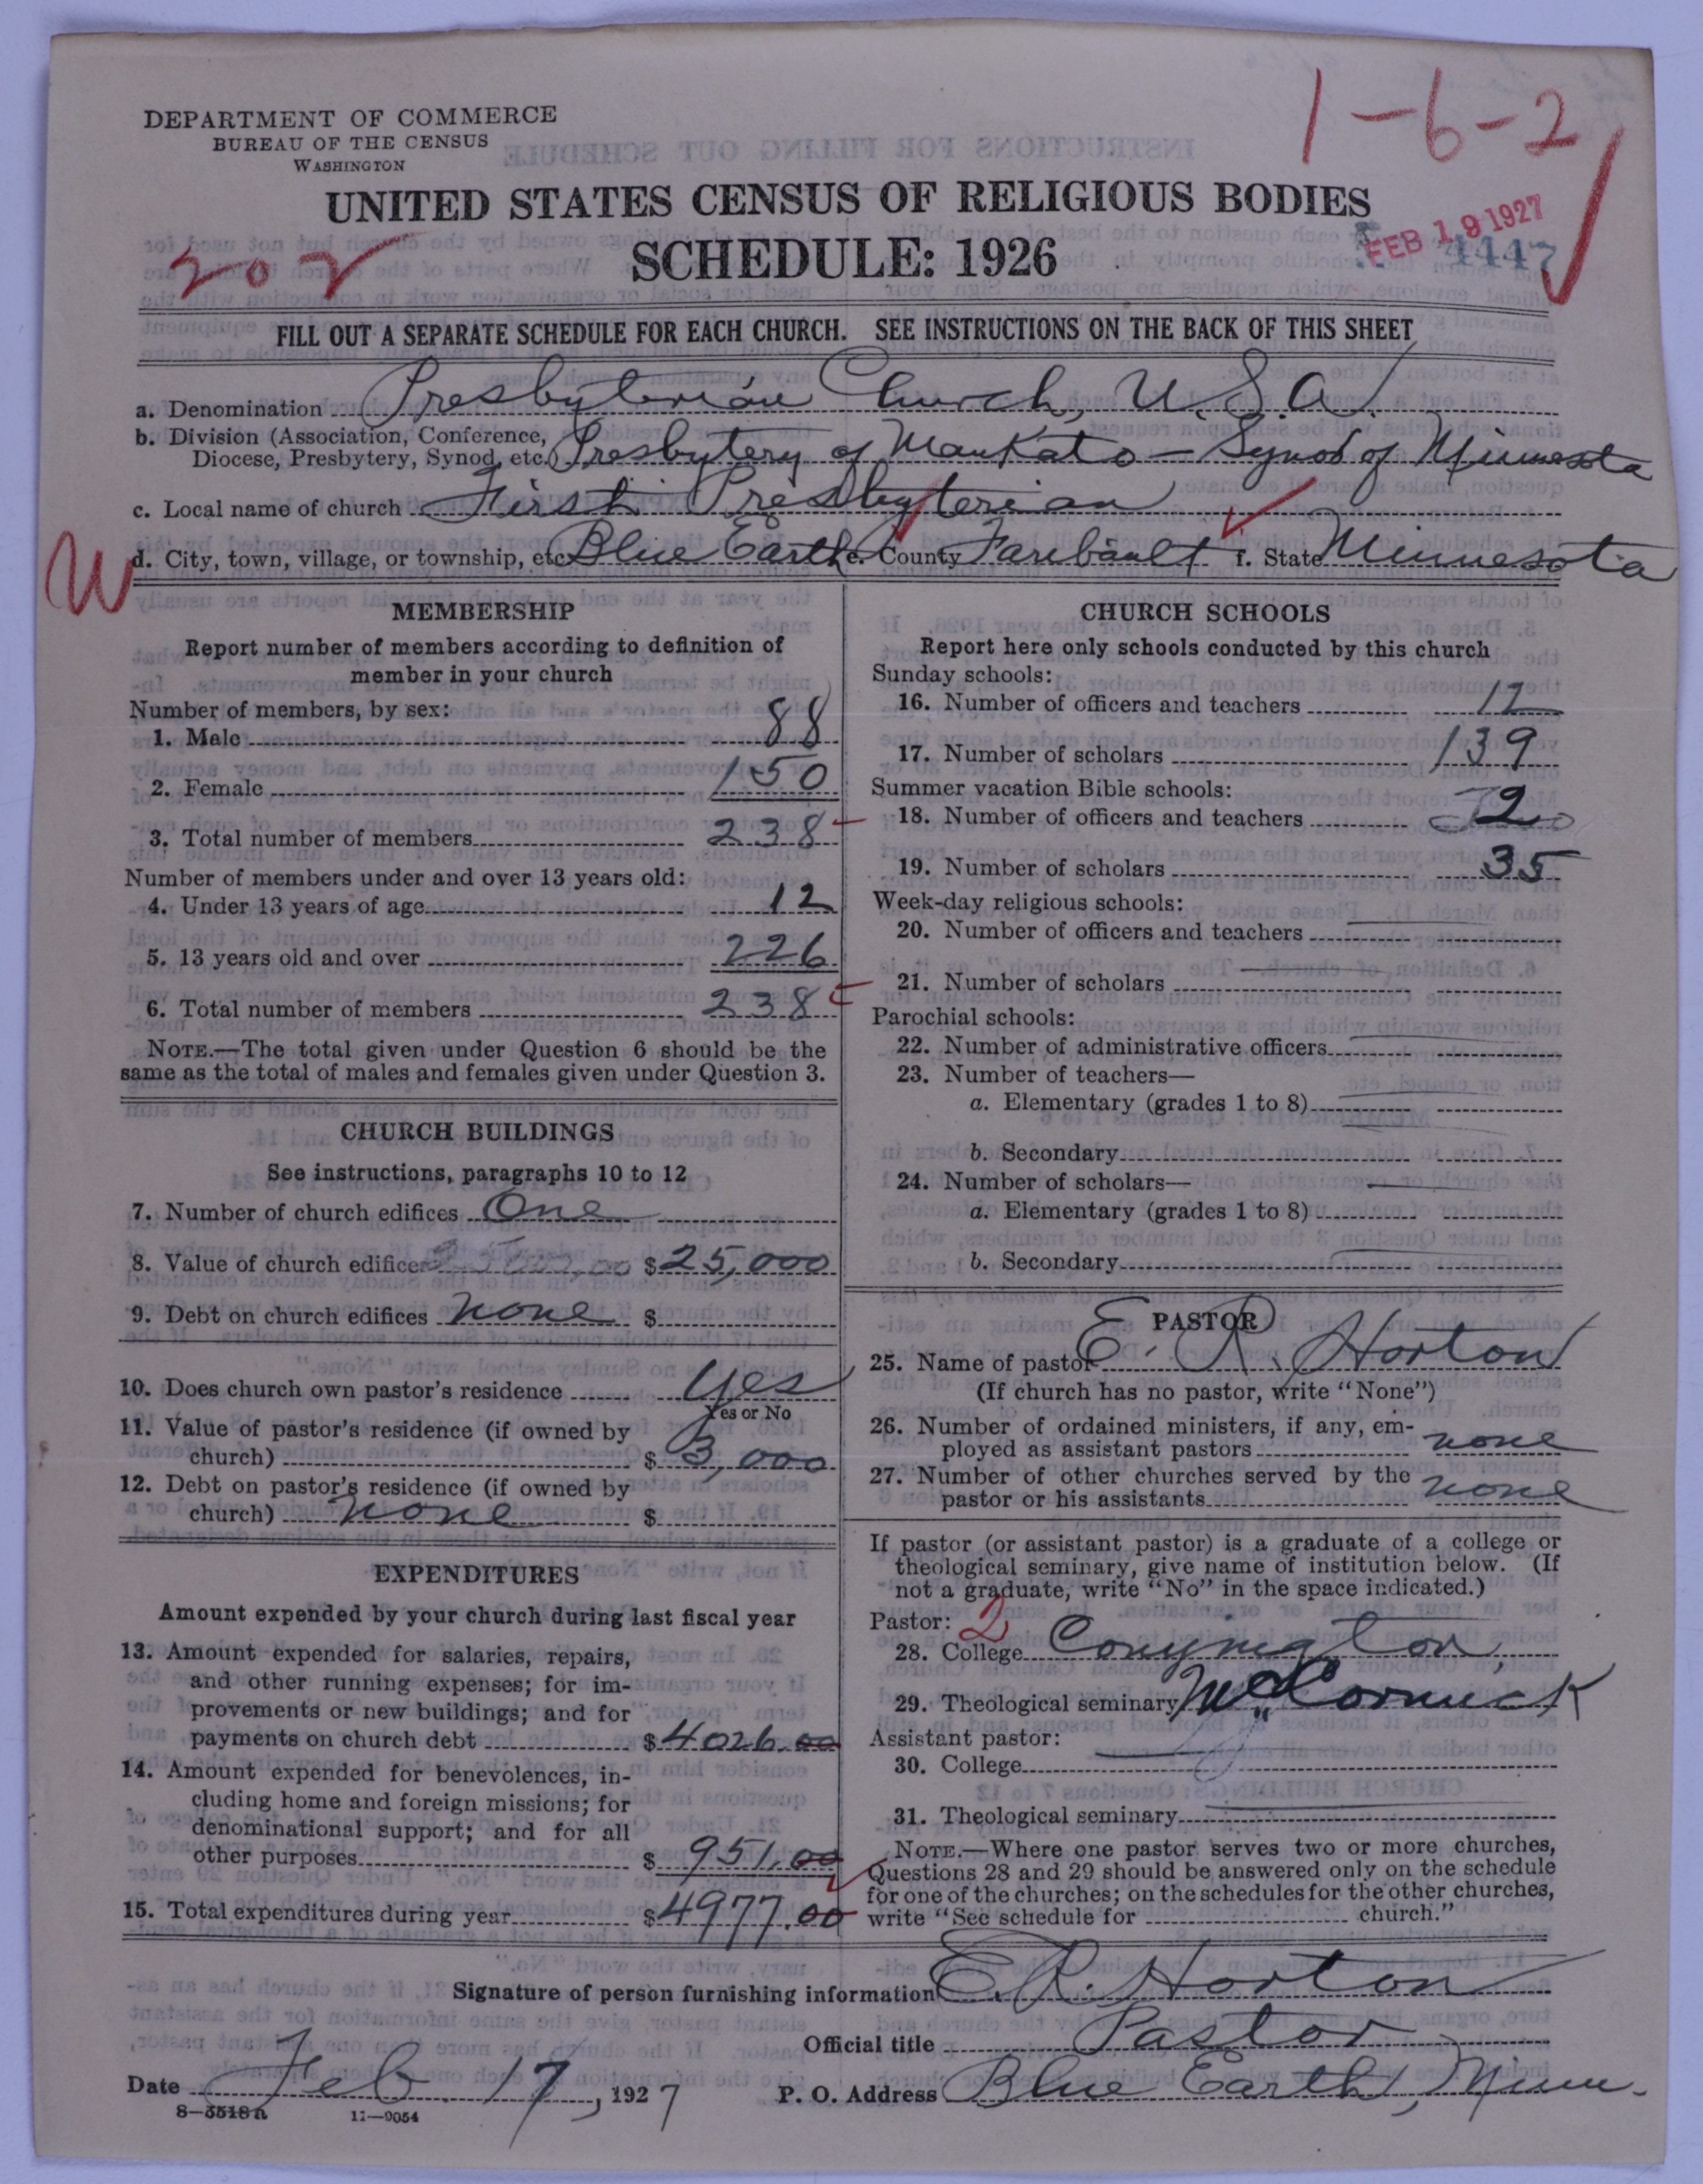 1-6-2
DEPARTMENT OF COMMERCE
BUREAU OF THE CENSUS
WASHINGTON
UNITED STATES CENSUS OF RELIGIOUS BODIES
SCHEDULE: 1926
202
FEB 19 1927
4447
FILL OUT A SEPARATE SCHEDULE FOR EACH CHURCH. SEE INSTRUCTIONS ON THE BACK OF THIS SHEET
a. Denomination Presbyterian Church, U.S.A.
b. Division (Association, Conference,
Diocese, Presbytery, Synod, etc.) Presbytery of Mankato - Synod of Minnesota
c. Local name of church First Presbyterian
W
d. City, town, village, or township, etc. Blue Earth e. County Faribault f. State Minnesota
MEMBERSHIP
Report number of members according to definition of
member in your church
Number of members, by sex:
1. Male 88
2. Female 150
3. Total number of members 238
Number of members under and over 13 years old:
4. Under 13 years of age 12
5. 13 years old and over 226
6. Total number of members 238
NOTE.—The total given under Question 6 should be the
same as the total of males and females given under Question 3.
CHURCH BUILDINGS
See instructions, paragraphs 10 to 12
7. Number of church edifices One
8. Value of church edifices $25,000
9. Debt on church edifices None $
10. Does church own pastor's residence Yes
Yes or No
11. Value of pastor's residence (if owned by
church) $ 3,000
12. Debt on pastor's residence (if owned by
church) None $
EXPENDITURES
Amount expended by your church during last fiscal year
13. Amount expended for salaries, repairs,
and other running expenses; for im-
provements or new buildings; and for
payments on church debt $4026.00
14. Amount expended for benevolences, in-
cluding home and foreign missions; for
denominational support; and for all
other purposes $ 951.00
15. Total expenditures during year $4977.00
CHURCH SCHOOLS
Report here only schools conducted by this church
Sunday schools:
16. Number of officers and teachers 12
17. Number of scholars 139
Summer vacation Bible schools:
18. Number of officers and teachers 2
19. Number of scholars 35
Week-day religious schools:
20. Number of officers and teachers
21. Number of scholars
Parochial schools:
22. Number of administrative officers
23. Number of teachers—
a. Elementary (grades 1 to 8)
b. Secondary
24. Number of scholars—
a. Elementary (grades 1 to 8)
b. Secondary
PASTOR
25. Name of pastor E. R. Horton
(If church has no pastor, write "None")
26. Number of ordained ministers, if any, em-
ployed as assistant pastors none
27. Number of other churches served by the
pastor or his assistants none
If pastor (or assistant pastor) is a graduate of a college or
theological seminary, give name of institution below. (If
not a graduate, write "No" in the space indicated.)
Pastor: 2
28. College
29. Theological seminary McCormick
Assistant pastor:
30. College
31. Theological seminary
NOTE.—Where one pastor serves two or more churches,
Questions 28 and 29 should be answered only on the schedule
for one of the churches; on the schedules for the other churches,
write "See schedule for church."
Signature of person furnishing information E. R. Horton
Official title Pastor
Date Feb. 17, 1927 P. O. Address Blue Earth, Minn.
8—3518a 11—9054